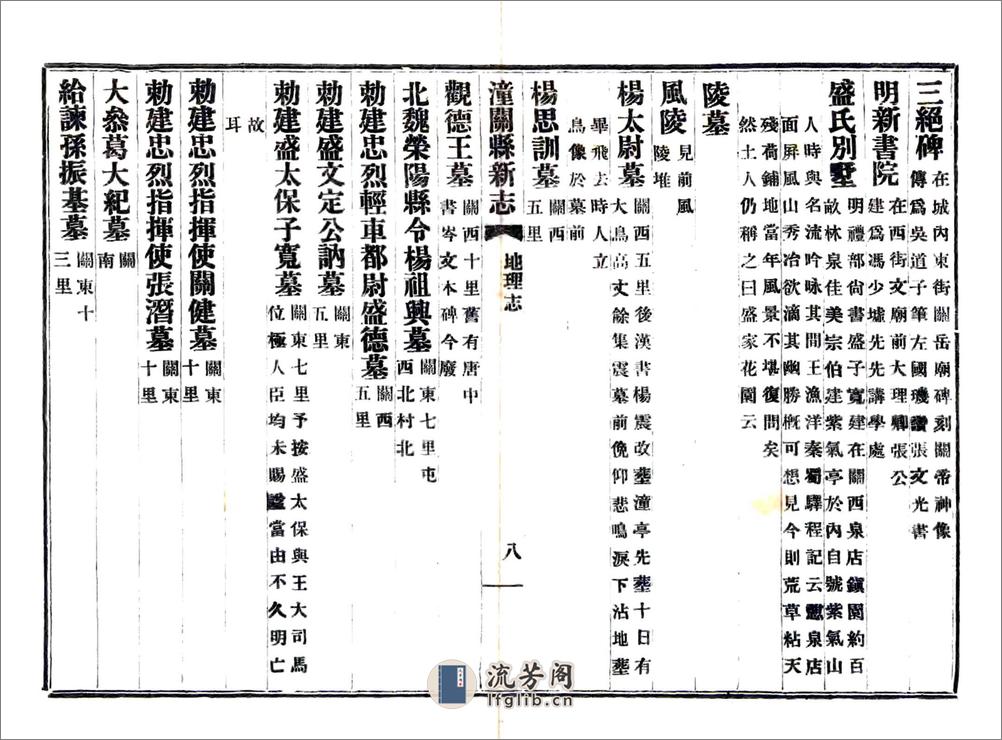 三絕碑 在城內東街關岳廟碑刻關帝神像
傳爲吳道子筆左國璣讚張文光書
明新書院 在西街文廟前大理卿張公
建爲馮少墟先先講學處
盛氏別墅 明禮部尙書盛子寬建在關西泉店鎭園約百
畝林泉佳美宗伯建紫氣亭於內自號紫氣山
人時與名流吟咏其間王漁洋秦蜀驛程記云泉店
面屏風山秀冶欲滴其幽勝槪可想見今則荒草粘天
殘荷鋪地當年風景不堪復問矣
然土人仍稱之曰盛家花園云
陵墓
風陵 見前風
陵堆
楊太尉墓 關西五里後漢書楊震改葬潼亭先葬十日有
大鳥高丈餘集震墓前俛仰悲鳴淚下沾地葬
畢飛去時人立
鳥像於墓前
楊思訓墓 關西
五里
潼關縣新志 地理志 八
觀德王墓 關西十里舊有唐中
書岑文本碑今廢
北魏榮陽縣令楊祖興墓 關東七里屯
西北村北
勅建忠烈輕車都尉盛德墓 關西
五里
勅建盛文定公訥墓 關東
五里
勅建盛太保子寬墓 關東七里予按盛太保與王大司馬
位極人臣均未賜諡當由不久明亡
故
耳
勅建忠烈指揮使關健墓 關東
十里
勅建忠烈指揮使張潛墓 關東
十里
大叅葛大紀墓 關
南
給諫孫振基墓 關東十
三里
流芳阁
lfglib.cn